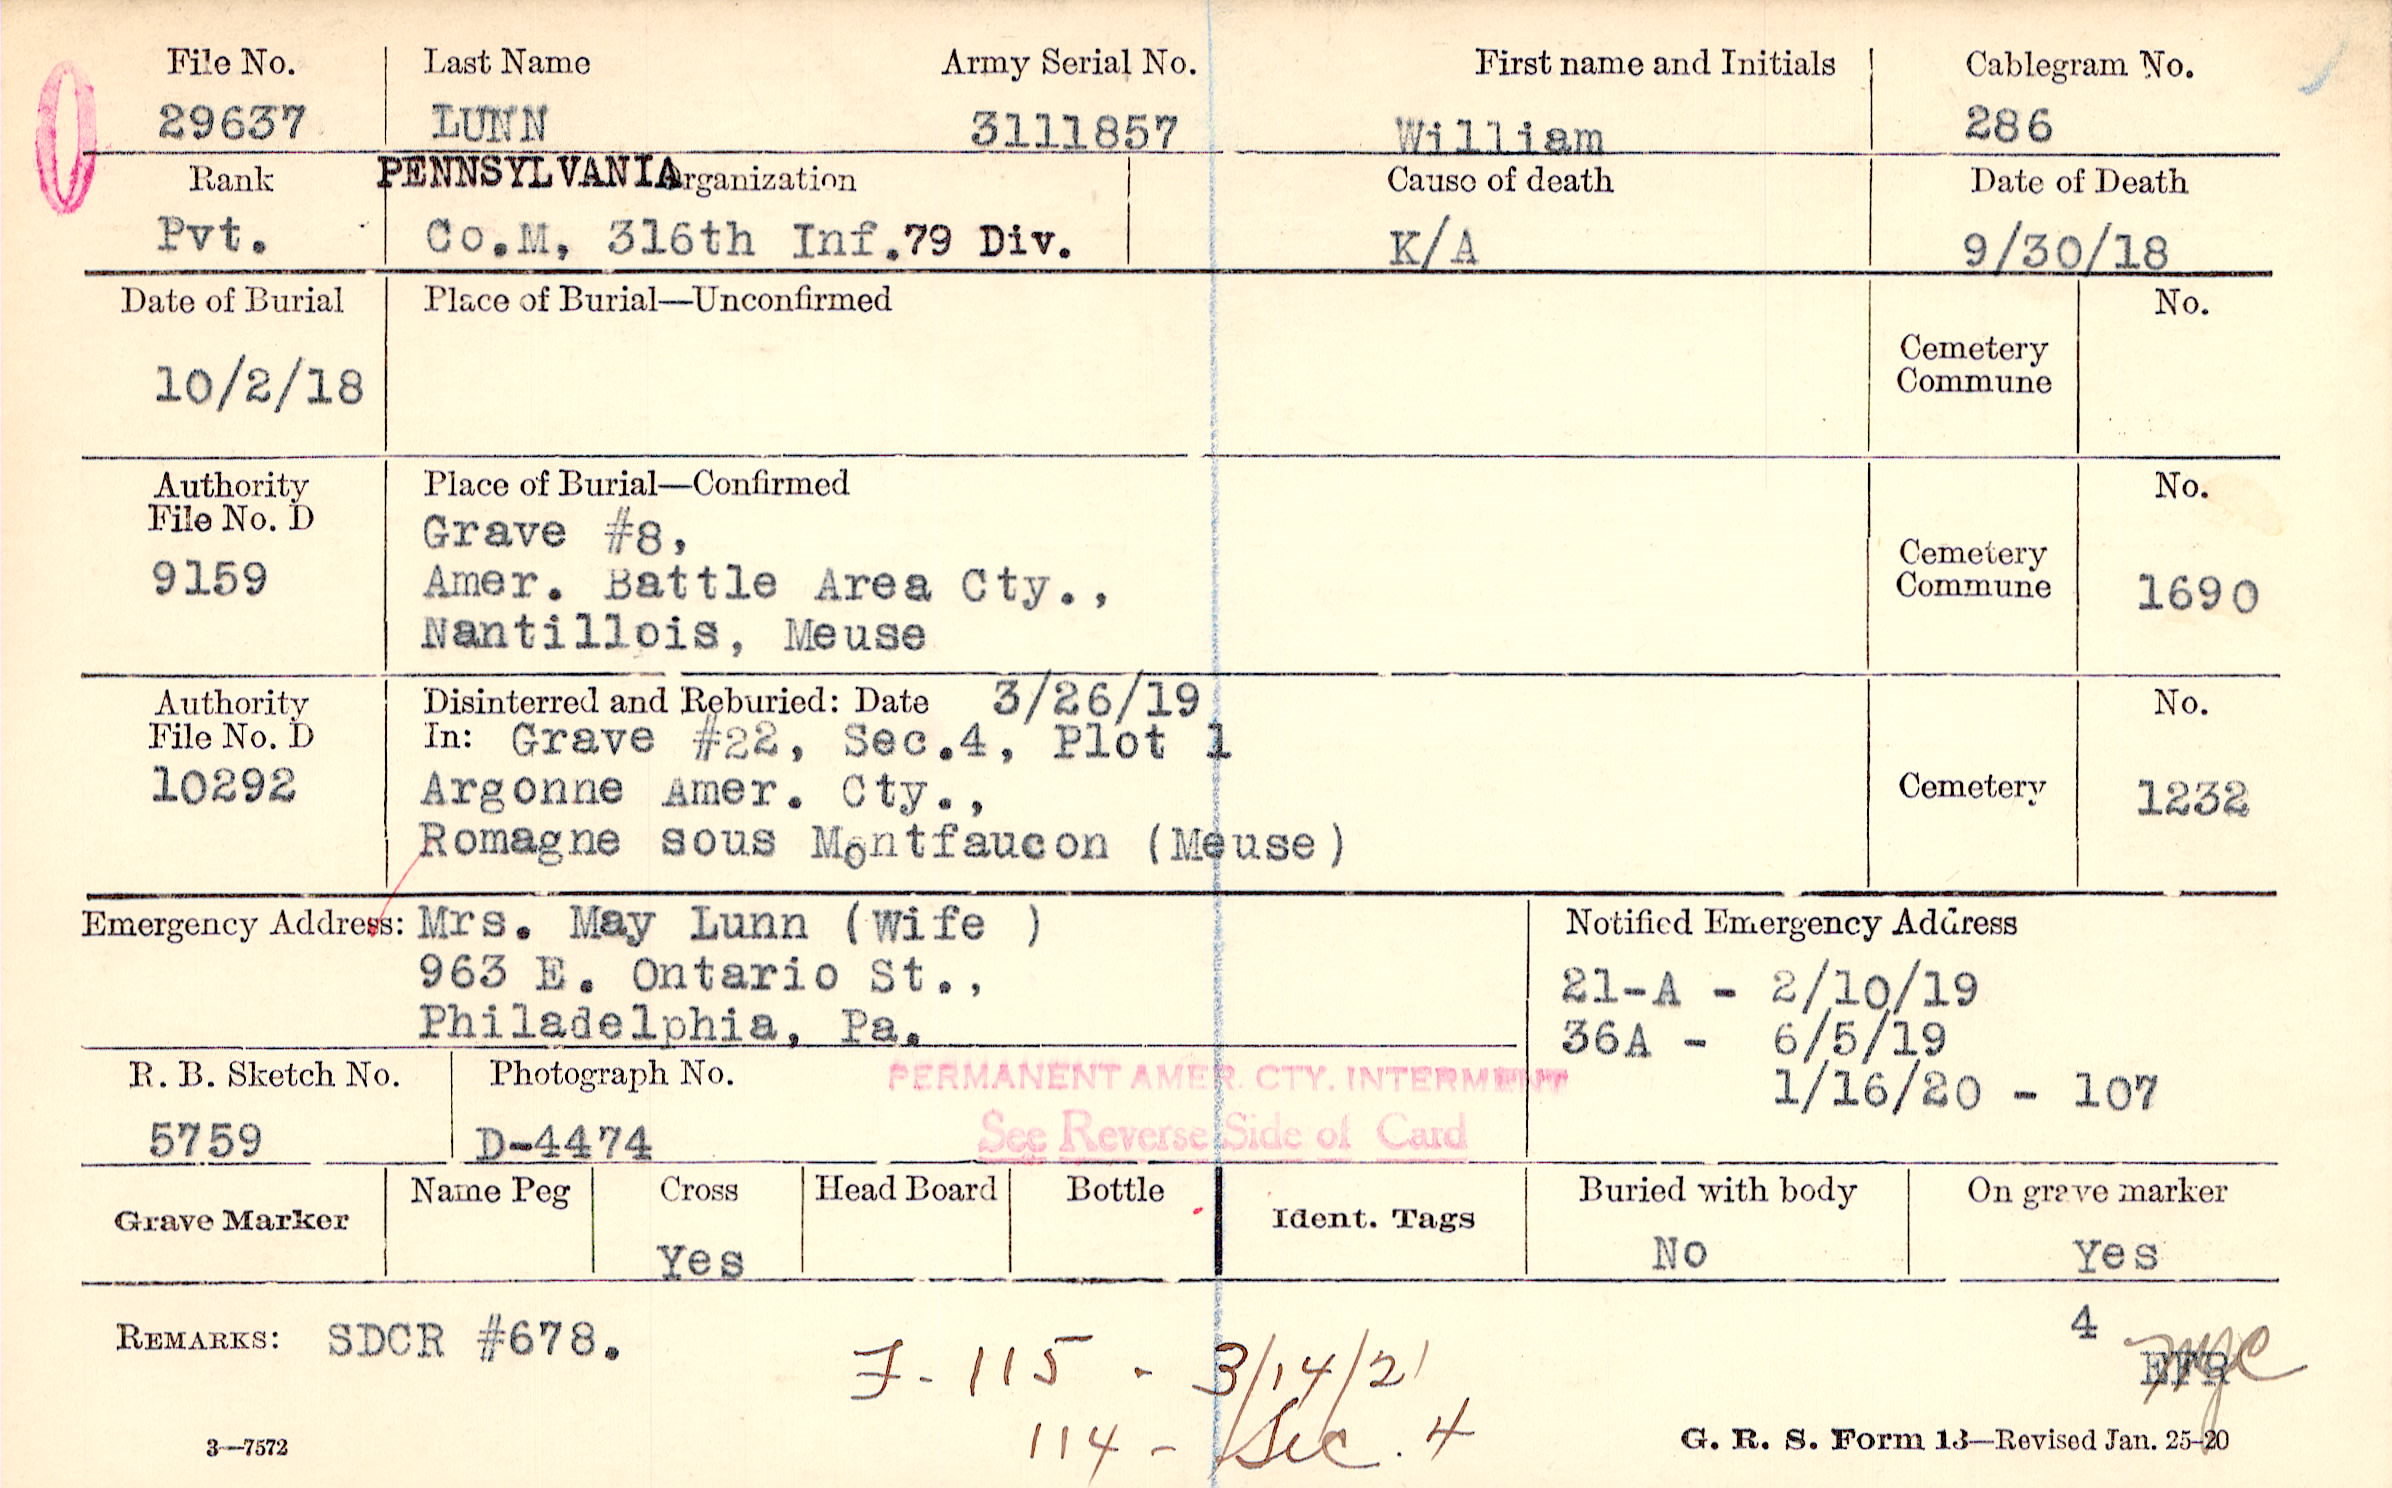 File No. Last Name Army Serial No. First name and Initials Cablegram No.
29637 LUNN 3111857 William 286
Rank PENNSYLVANIA rganization Cause of death Date of Death
Pvt. Co.M, 316th Inf.79 Div. K/A 9/30/18
Date of Burial Place of Burial—Unconfirmed No.
Cemetery
Commune
10/2/18
Authority Place of Burial—Confirmed No.
File No. D Grave #8,
9159 Amer. Battle Area Cty., Cemetery
Commune 1690
Nantillois, Meuse
Authority Disinterred and Reburied: Date 3/26/19 No.
File No. D In: Grave #22, Sec.4, Plot 1
10292 Argonne Amer. Cty., Cemetery 1232
Romagne sous Montfaucon (Meuse)
Emergency Address: Mrs. May Lunn (Wife ) Notified Emergency Address
963 E. Ontario St., 21-A - 2/10/19
Philadelphia, Pa. 36A - 6/5/19
R. B. Sketch No. Photograph No. PERMANENT AMER. CTY. INTERMENT 1/16/20 - 107
5759 D-4474 See Reverse Side of Card
Grave Marker Name Peg Cross Head Board Bottle Ident. Tags Buried with body On grave marker
Yes No Yes
4
REMARKS: SDCR #678.
F- 115 - 3/14/21
114 - Sec. 4
3—7572 G. R. S. Form 13—Revised Jan. 25-20